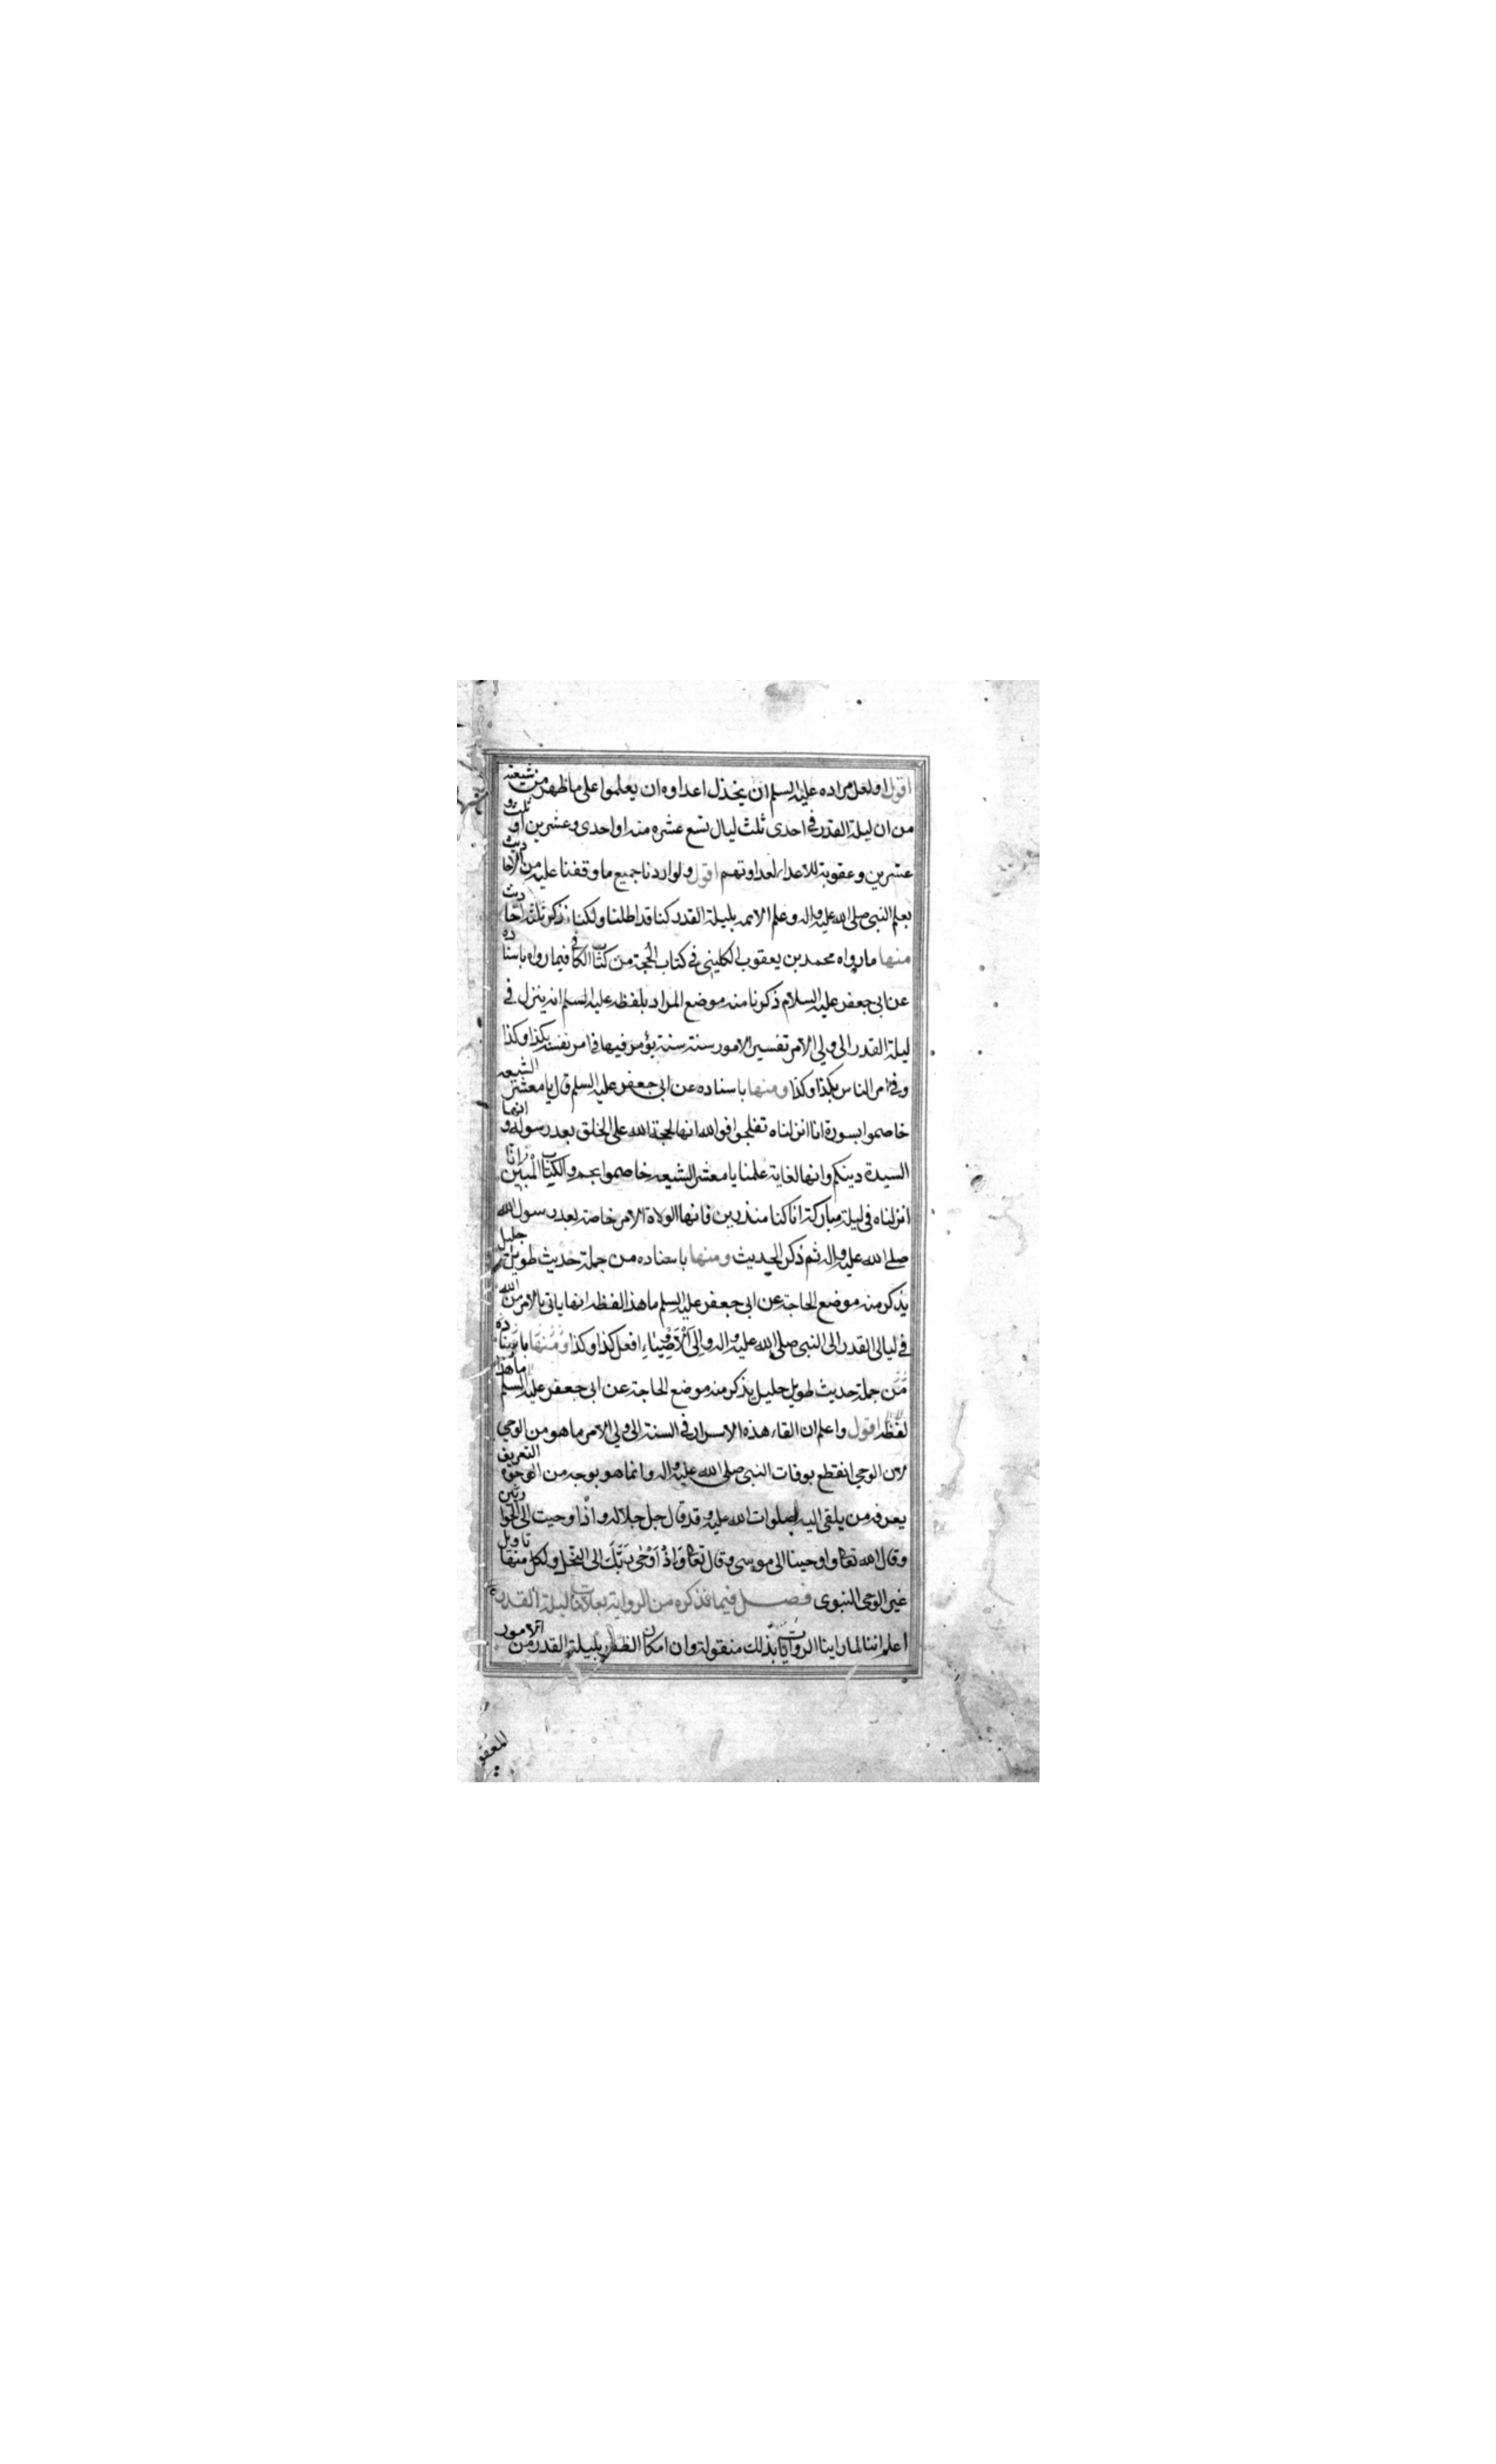 اقول او لعل مراده عليه السلم ان يخذل اعداوه ان يعلموا على ما ظهر من شيعته
من ان ليلة القدر في احدى ثلث ليال تسع عشره منه او احدى وعشرين او ثلث و
عشرين وعقوبة للاعداء لعداوتهم اقول ولو اردنا جميع ما وقفنا عليه من الاحاديث
بعلم النبى صلى الله عليه واله وعلم الائمه بليلة القدر كنا قد اطلنا ولكنا نذكر ثلثه احاديث
منها ما رواه محمد بن يعقوب الكليني في كتاب الحجة من كتاب الكافي فيما رواه باسناده
عن ابى جعفر عليه السلام ذكرنا منه موضع المراد بلفظه عليه السلم انه ينزل في
ليلة القدر الى ولي الامر تفسير الامور سنة سنة يؤمر فيها في امر نفسه بكذا وكذا
وفي امر الناس بكذا وكذا ومنها باسناده عن ابى جعفر عليه السلم قال يا معشر الشيعه
خاصموا بسورة انا انزلناه تفلجوا فوالله انها لحجة الله على الخلق بعد رسوله وانها
السيدة دينكم وانها لغاية علمنا يا معشر الشيعه خاصموا بحم والكتاب المبين انا
انزلناه في ليلة مباركة انا كنا منذرين فانها لولاة الامر خاصة بعد رسول الله
صلى الله عليه واله ثم ذكر الحديث ومنها باسناده من جملة حديث طويل جليل
يذكر منه موضع الحاجة عن ابى جعفر عليه السلم ما هذا لفظه انها ياتى بالامر من الله
في ليالى القدر الى النبى صلى الله عليه واله والى الاوصياء افعل كذا وكذا ومنها باسناده
من جملة حديث طويل جليل يذكر منه موضع الحاجة عن ابى جعفر عليه السلم ما هذا
لفظه اقول واعلم ان القاء هذه الاسرار في السنة الى ولي الامر ما هو من الوحي
لان الوحي انقطع بوفات النبى صلى الله عليه واله وانما هو بوجه من التعريف
يعرفه من يلقى اليه صلوات الله عليه وقد قال جل جلاله واذ اوحيت الى الحواريين
وقال الله تعا واوحينا الى موسى وقال تعا واذ اوحى ربك الى النحل ولكل منها تاويل
غير الوحى النبوى فصل فيما نذكره من الرواية بعلامات ليلة القدر
اعلم اننا لما راينا الروايات بذلك منقولة وان امكان الظفر بليلة القدر من الامور
المعقو